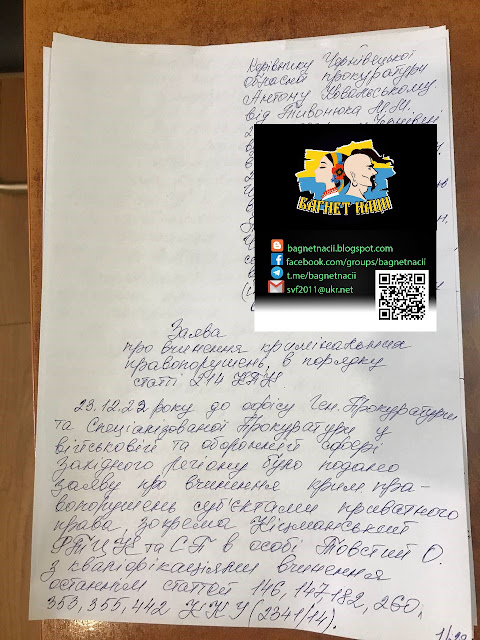 Керівнику Чернівецької
обласної прокуратури
Антону
від Тивонюка М.М.
БАГНЕТ НАЦІЇ
bagnetnacii.blogspot.com
facebook.com/groups/bagnetnacii
t.me/bagnetnacii
svf2011@ukr.net
Заява
про вчинення кримінальних
правопорушень, в порядку
статті 214 КПК.
23.12.22 року до офісу Ген.Прокуратури
та Спеціалізованої Прокуратури у
військовій та оборонній сфері
Західного регіону було подано
заяву про вчинення крим.пра-
вопорушень суб'єктами приватного
права, зокрема Кіцманський
РТЦК та СП в особі Товстий О.
з кваліфікаціями вчинення
останнім статтой 146, 147, 182, 260,
353, 355, 442 ККУ (2341/14).